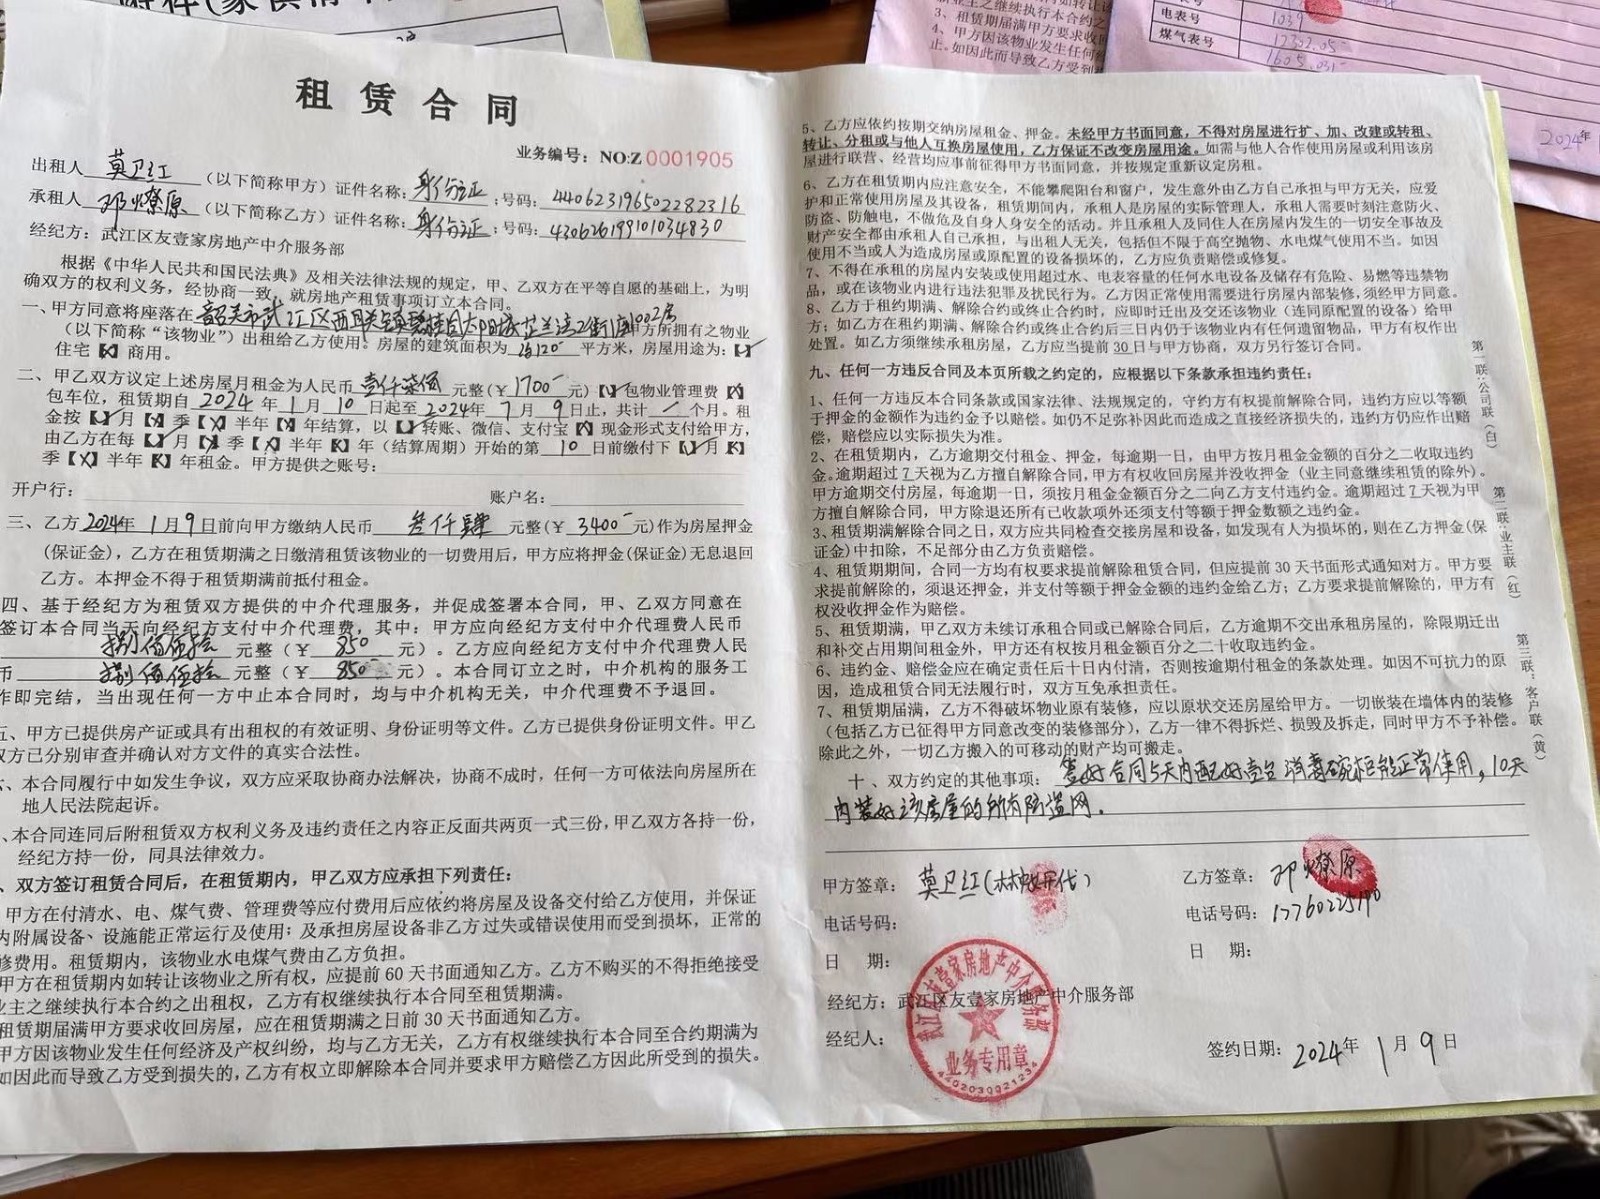 租赁合同
业务编号：NO:Z 0001905
出租人 莫卫红 （以下简称甲方）证件名称：身份证；号码：440623196502282316
承租人 邓燎原 （以下简称乙方）证件名称：身份证；号码：430626199101034830
经纪方：武江区友壹家房地产中介服务部
根据《中华人民共和国民法典》及相关法律法规的规定，甲、乙双方在平等自愿的基础上，为明
确双方的权利义务，经协商一致，就房地产租赁事项订立本合同。
一、甲方同意将座落在 韶关市武江区西联镇碧桂园太阳城芷兰湾2街1座1002房 甲方所拥有之物业
（以下简称“该物业”）出租给乙方使用。房屋的建筑面积为 约120 平方米，房屋用途为：【✓】
住宅【X】商用。
二、甲乙双方议定上述房屋月租金为人民币 壹仟柒佰 元整（￥1700 元）【✓】包物业管理费【X】
包车位，租赁期自 2024 年 1 月 10 日起至 2024年 7 月 9 日止，共计 个月。租
金按【✓】月【X】季【X】半年【X】年结算，以【✓】转账、微信、支付宝【X】现金形式支付给甲方，
由乙方在每【✓】月【X】季【X】半年【X】年（结算周期）开始的第 10 日前缴付下【✓】月【X】
季【X】半年【X】年租金。甲方提供之账号：
开户行： 账户名：
三、乙方 2024年 1月 9日前向甲方缴纳人民币 叁仟肆 元整（￥ 3400 元）作为房屋押金
（保证金），乙方在租赁期满之日缴清租赁该物业的一切费用后，甲方应将押金（保证金）无息退回
乙方。本押金不得于租赁期满前抵付租金。
四、基于经纪方为租赁双方提供的中介代理服务，并促成签署本合同，甲、乙双方同意在
签订本合同当天向经纪方支付中介代理费，其中：甲方应向经纪方支付中介代理费人民币
捌佰伍拾 元整（￥ 850 元）。乙方应向经纪方支付中介代理费人民
币 捌佰伍拾 元整（￥ 850 元）。本合同订立之时，中介机构的服务工
作即完结，当出现任何一方中止本合同时，均与中介机构无关，中介代理费不予退回。
五、甲方已提供房产证或具有出租权的有效证明、身份证明等文件。乙方已提供身份证明文件。甲乙
双方已分别审查并确认对方文件的真实合法性。
、本合同履行中如发生争议，双方应采取协商办法解决，协商不成时，任何一方可依法向房屋所在
地人民法院起诉。
、本合同连同后附租赁双方权利义务及违约责任之内容正反面共两页一式三份，甲乙双方各持一份，
经纪方持一份，同具法律效力。
、双方签订租赁合同后，在租赁期内，甲乙双方应承担下列责任：
甲方在付清水、电、煤气费、管理费等应付费用后应依约将房屋及设备交付给乙方使用，并保证
内附属设备、设施能正常运行及使用；及承担房屋设备非乙方过失或错误使用而受到损坏，正常的
修费用。租赁期内，该物业水电煤气费由乙方负担。
甲方在租赁期内如转让该物业之所有权，应提前60天书面通知乙方。乙方不购买的不得拒绝接受
业主之继续执行本合约之出租权，乙方有权继续执行本合同至租赁期满。
租赁期届满甲方要求收回房屋，应在租赁期满之日前30天书面通知乙方。
甲方因该物业发生任何经济及产权纠纷，均与乙方无关，乙方有权继续执行本合同至合约期满为
如因此而导致乙方受到损失的，乙方有权立即解除本合同并要求甲方赔偿乙方因此所受到的损失。
5、乙方应依约按期交纳房屋租金、押金。未经甲方书面同意，不得对房屋进行扩、加、改建或转租、
转让、分租或与他人互换房屋使用，乙方保证不改变房屋用途。如需与他人合作使用房屋或利用该房
屋进行联营、经营均应事前征得甲方书面同意，并按规定重新议定房租。
6、乙方在租赁期内应注意安全，不能攀爬阳台和窗户，发生意外由乙方自己承担与甲方无关，应爱
护和正常使用房屋及其设备，租赁期间内，承租人是房屋的实际管理人，承租人需要时刻注意防火、
防盗、防触电，不做危及自身人身安全的活动。并且承租人及同住人在房屋内发生的一切安全事故及
财产安全都由承租人自己承担，与出租人无关，包括但不限于高空抛物、水电煤气使用不当。如因
使用不当或人为造成房屋或原配置的设备损坏的，乙方应负责赔偿或修复。
7、不得在承租的房屋内安装或使用超过水、电表容量的任何水电设备及储存有危险、易燃等违禁物
品，或在该物业内进行违法犯罪及扰民行为。乙方因正常使用需要进行房屋内部装修，须经甲方同意。
8、乙方于租约期满、解除合约或终止合约后，应即时迁出及交还该物业（连同原配置的设备）给甲
方；如乙方在租约期满、解除合约或终止合约后三日内仍于该物业内有任何遗留物品，甲方有权作出
处置。如乙方须继续承租房屋，乙方应当提前30日与甲方协商，双方另行签订合同。
九、任何一方违反合同及本页所载之约定的，应根据以下条款承担违约责任：
1、任何一方违反本合同条款或国家法律、法规规定的，守约方有权提前解除合同，违约方应以等额
于押金的金额作为违约金予以赔偿。如仍不足弥补因此而造成之直接经济损失的，违约方仍应作出赔
偿，赔偿应以实际损失为准。
2、在租赁期内，乙方逾期交付租金、押金，每逾期一日，由甲方按月租金金额的百分之二收取违约
金。逾期超过7天视为乙方擅自解除合同，甲方有权收回房屋并没收押金（业主同意继续租赁的除外）。
甲方逾期交付房屋，每逾期一日，须按月租金金额百分之二向乙方支付违约金。逾期超过7天视为甲
方擅自解除合同，甲方除退还所有已收款项外还须支付等额于押金数额之违约金。
3、租赁期满解除合同之日，双方应共同检查交接房屋和设备，如发现有人为损坏的，则在乙方押金（保
证金）中扣除，不足部分由乙方负责赔偿。
4、租赁期期间，合同一方均有权要求提前解除租赁合同，但应提前30天书面形式通知对方。甲方要
求提前解除的，须退还押金，并支付等额于押金金额的违约金给乙方；乙方要求提前解除的，甲方有
权没收押金作为赔偿。
5、租赁期满，甲乙双方未续订承租合同或已解除合同后，乙方逾期不交出承租房屋的，除限期迁出
和补交占用期间租金外，甲方还有权按月租金额百分之二十收取违约金。
6、违约金、赔偿金应在确定责任后十日内付清，否则按逾期付租金的条款处理。如因不可抗力的原
因，造成租赁合同无法履行时，双方互免承担责任。
7、租赁期届满，乙方不得破坏物业原有装修，应以原状交还房屋给甲方。一切嵌装在墙体内的装修
（包括乙方已征得甲方同意改变的装修部分），乙方一律不得拆烂、损毁及拆走，同时甲方不予补偿。
除此之外，一切乙方搬入的可移动的财产均可搬走。
十、双方约定的其他事项：签好合同5天内配好壹台消毒碗柜能正常使用，10天
内装好该房屋的所有防盗网。
甲方签章：莫卫红（林 代）
电话号码：
日 期：
乙方签章：邓燎原
电话号码：
日 期：
经纪方：武江区友壹家房地产中介服务部
经纪人：
签约日期：2024年 1月 9日
武江区友壹家房地产中介服务部
业务专用章
4402030021234
第一联：公司联（白）
第二联：业主联（红）
第三联：客户联（黄）
业主之继续执行本合约之
3、租赁期届满甲方要求收回
4、甲方因该物业发生任何
止。如因此而导致乙方受到
电表号 1039
煤气表号 12302.05
1605.031
2024年